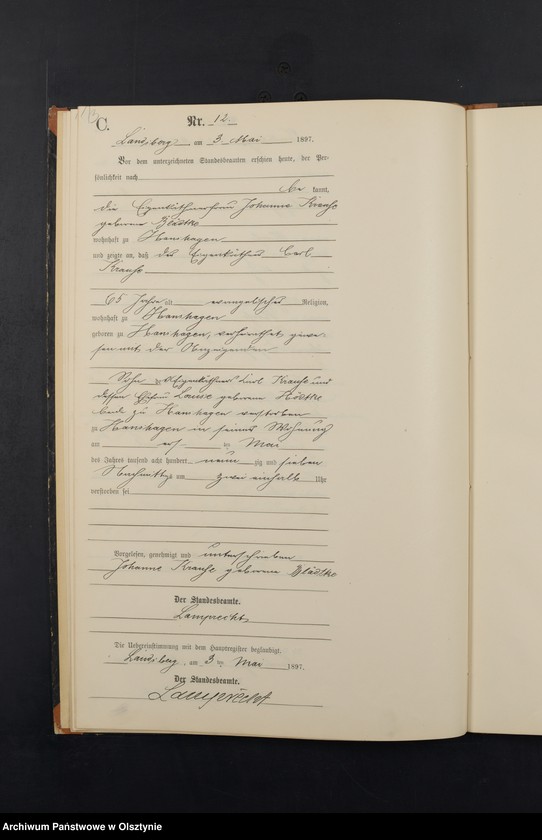 C.
Nr. 12
Landsberg am 3 Mai 1897.
Vor dem unterzeichneten Standesbeamten erschien heute, der Per-
sönlichkeit nach
be kannt,
die Eigenkäthnerfrau Johanne Krause
geborene Bladtke
wohnhaft zu Hanshagen
und zeigte an, daß der Eigenkäthner Carl
Krause
65 Jahre alt evangelischer Religion,
wohnhaft zu Hanshagen
geboren zu Hanshagen, verheirathet gewe-
sen mit der Anzeigenden
Sohn des Eigenkäthners Carl Krause und
dessen Ehefrau Louise geborene
beide zu Hanshagen verstorben
zu Hanshagen in seiner Wohnung
am ersten Mai
des Jahres tausend acht hundert neun zig und sieben
Nachmittags um zwei einhalb Uhr
verstorben sei
Vorgelesen, genehmigt und unterschrieben
Johanne Krause geborene Bladtke
Der Standesbeamte.
Lamprecht
Die Uebereinstimmung mit dem Hauptregister beglaubigt.
Landsberg, am 3 ten Mai 1897.
Der Standesbeamte.
Lamprecht
Archiwum Państwowe w Olsztynie